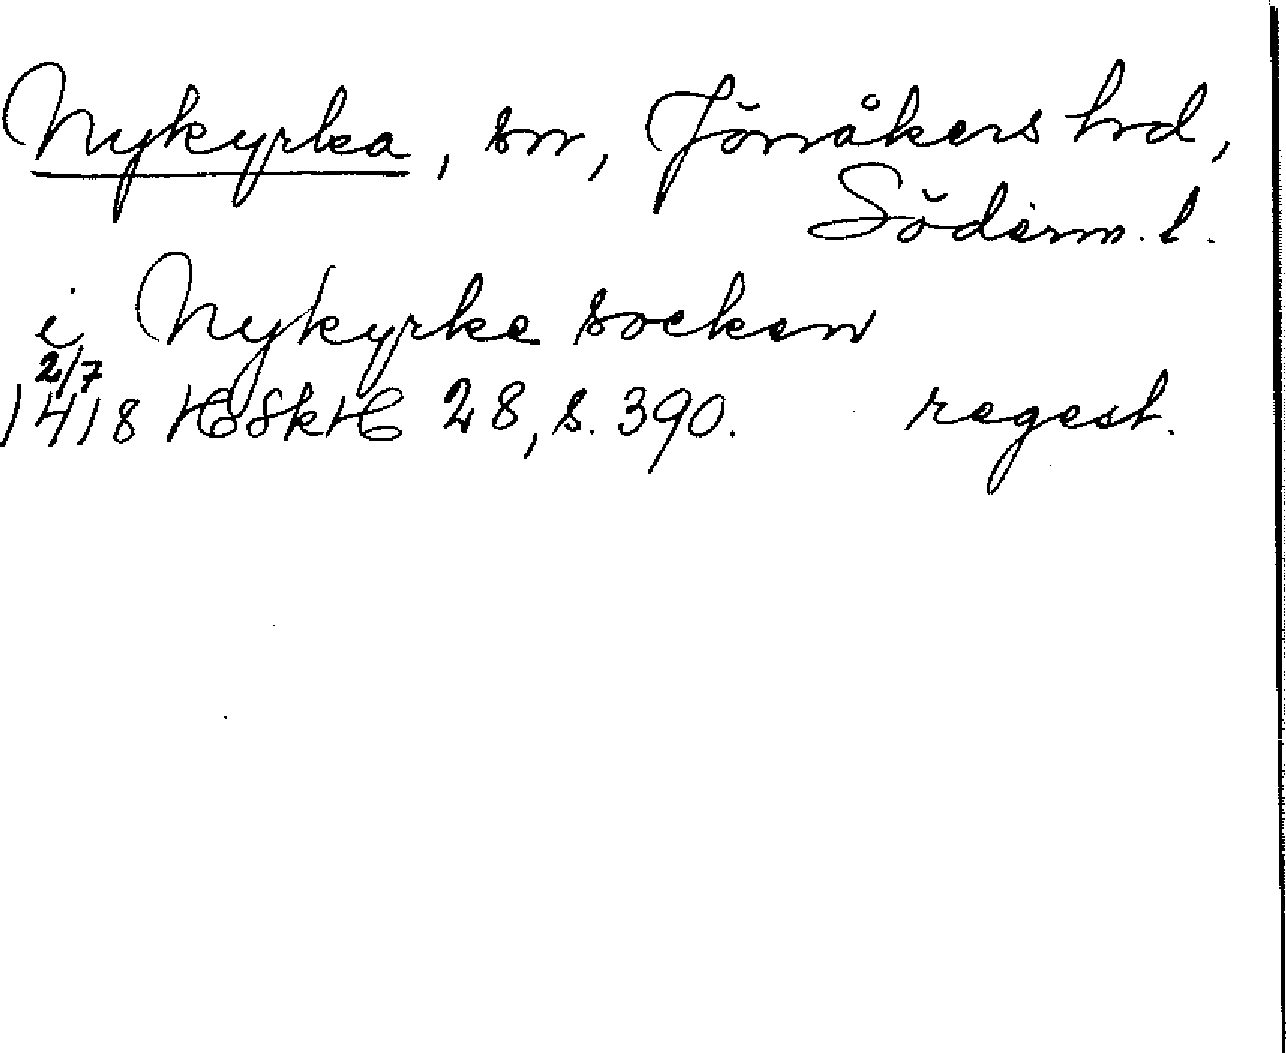 Nykyrka, sn, Jönåkers hd,
Söderm. l.
i Nykyrke socken
2/7
1418 HSkH 28, s. 390. regest.